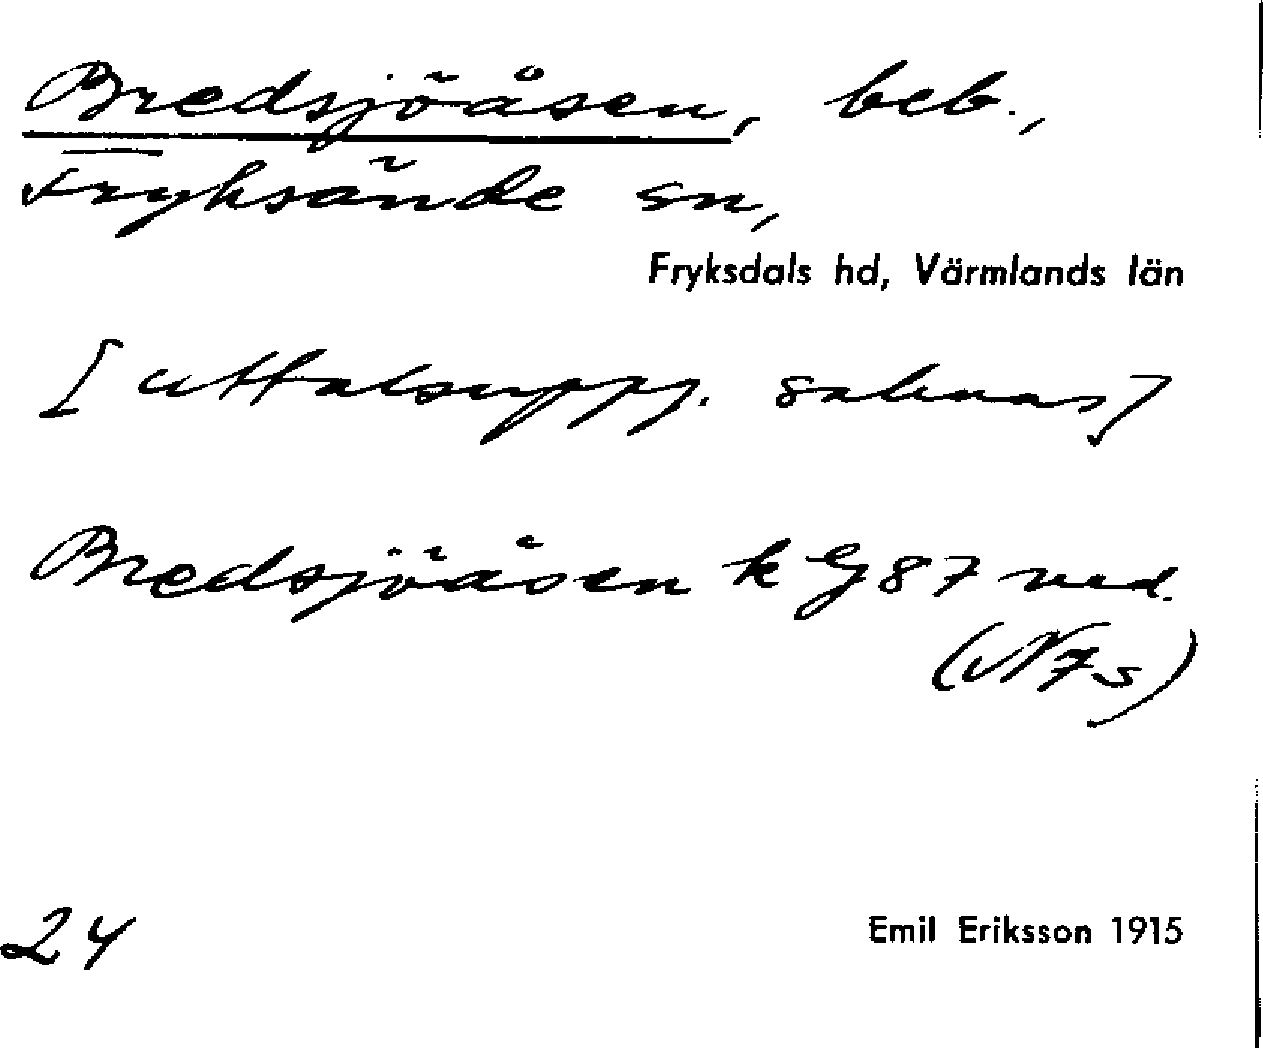 Bredsjöåsen, beb.,
Fryksände sn,
Fryksdals hd, Värmlands län
[uttalsuppg. saknas]
Bredsjöåsen k G 87 ned.
(N 7 s)
24
Emil Eriksson 1915